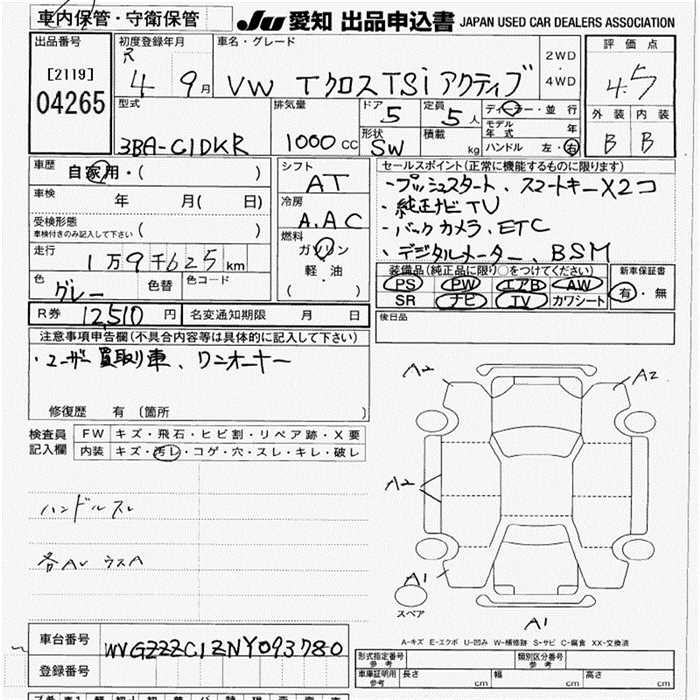 車内保管・守衛保管
JU 愛知 出品申込書 JAPAN USED CAR DEALERS ASSOCIATION
出品番号
[2119]
04265
初度登録年月
R
4 9月
車名・グレード
VW TクロスTSiアクティブ
2WD
・
4WD
評価点
4.5
外装 内装
B B
型式
3BA-C1DKR
排気量
1000cc
ドア
5
形状
SW
定員
5人
積載
kg
ディーラー・並行
モデル年式 年
ハンドル 左・右
車歴
自家用・( )
車検
年 月( 日)
受検形態
車検付きのみ記入して下さい ( )
走行
1万9千625km
色
グレー
色替
色コード
シフト
AT
冷房
A.AC
燃料
ガソリン
軽・油
・
( )
セールスポイント(正常に機能するものに限ります)
・プッシュスタート、スマートキーX2コ
・純正ナビTV
・バックカメラ、ETC
・デジタルメーター、BSM
装備品(純正品に限り○をつけてください)
PS PW エアB AW
SR ナビ TV カワシート
新車保証書
有・無
R券 12,510円
名変通知期限 月 日
後日品
注意事項申告欄(不具合内容等は具体的に記入して下さい)
・ユーザー買取り車、ワンオーナー
修復歴 有 〔箇所 〕
検査員
記入欄
FW キズ・飛石・ヒビ割・リペア跡・X要
内装 キズ・汚レ・コゲ・穴・スレ・キレ・破レ
ハンドルスレ
各AL ウスA
A2
A2
A2
A1
A1
スペア
A-キズ E-エクボ U-凹み W-補修跡 S-サビ C-腐食 XX-交換済
車台番号 WVGZZZC1ZNY093780
登録番号
形式指定番号
参考
類別区分番号
参考
車庫証明用
参考
長さ cm 幅 cm 高さ cm